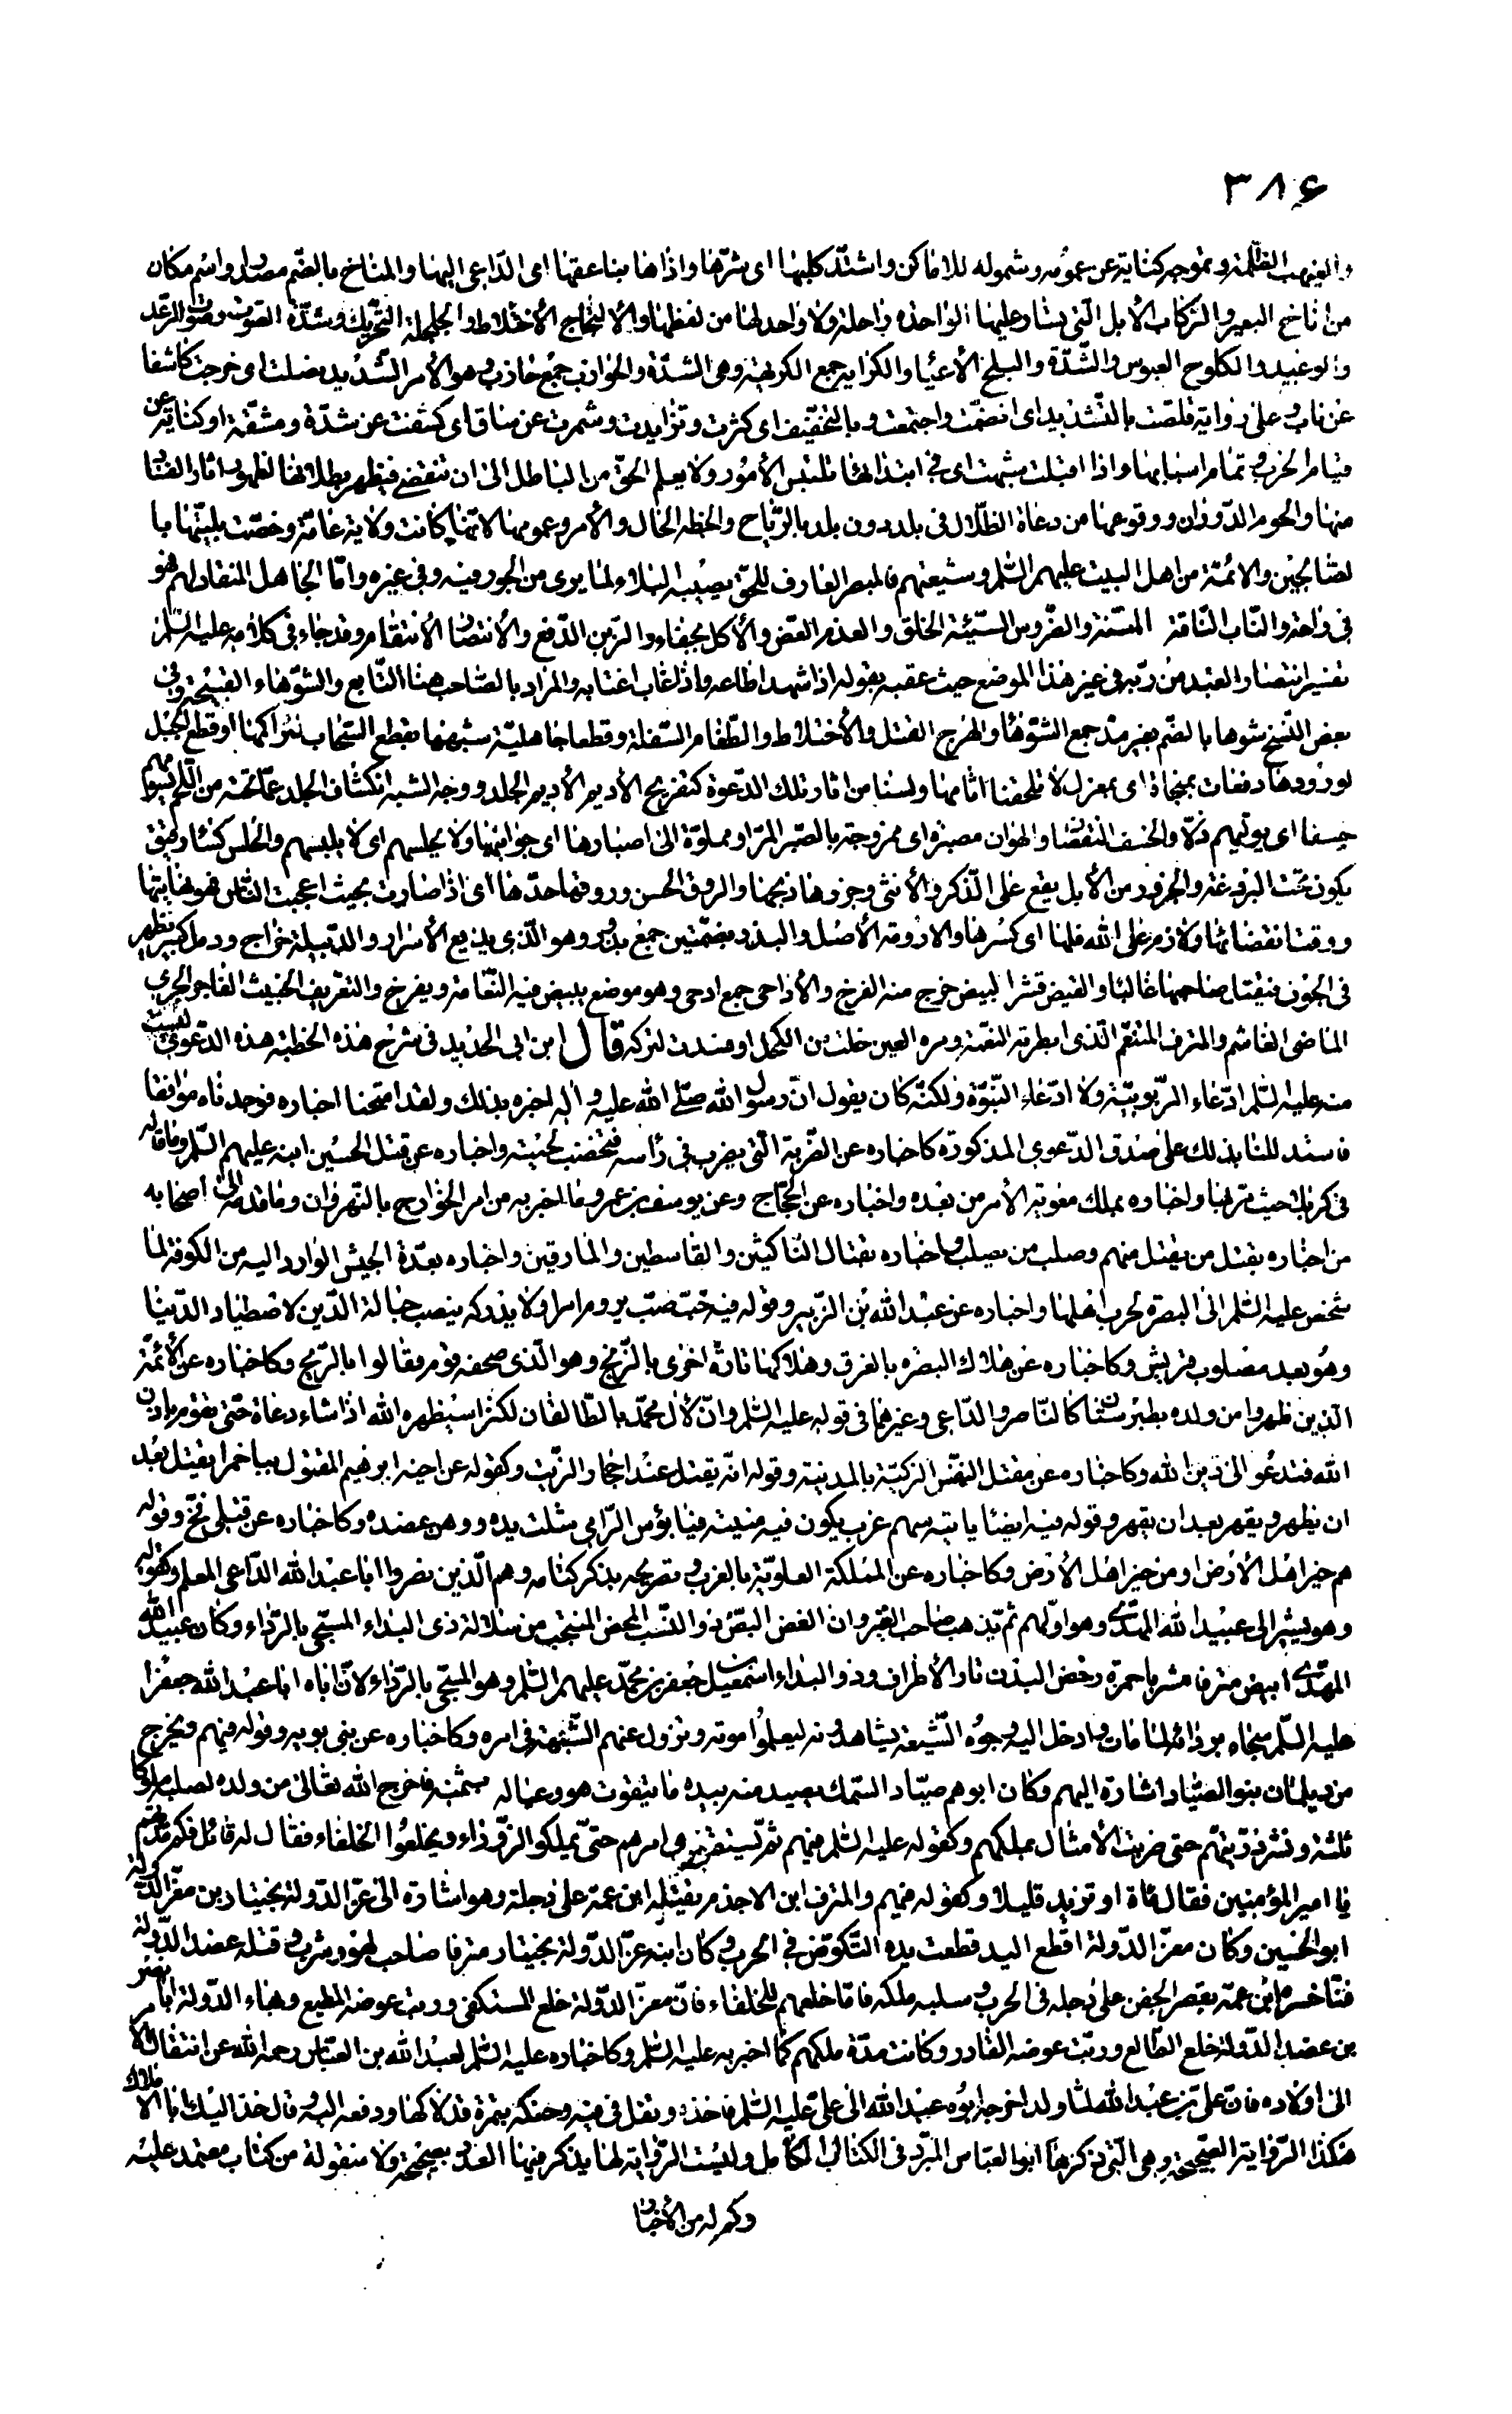 ٣٨۶
والغيهب الظلمة وتموجه كناية عن عمومه وشموله للاماكن واشتدّ كلبها اى شرّها واذاها بناعقها اى الدّاعى اليها والمناخ بالضّم مصدر واسم مكان
من اناخ البعير والركاب الأبل الّتى يسار عليها الواحده راحلة ولا واحد لها من لفظها والألتجاج الأختلاط والجلجلة التّحريك وشدّة الصّوت وصوت الرّعد
والوعيد والكلوح العبوس والشّدّة والبلح الأعياء والكرايه جمع الكريهة وهى الشدّة والحوازب جمع حازب وهو الأمر الشّديد نضلت اى خرجت كاشفا
عن ناب وعلى رواية قلصّت بالتّشديد اى انضمّت واجتمعت وبالتخفيف اى كثرت وتزايدت وشمرت عن ساق اى كشفت عن شدّة ومشقّة او كناية عن
قيام الحرب وتمام اسبابها واذا اقبلت شبهت اى فى ابتدائها تلتبس الأمور ولا يعلم الحقّ من الباطل الى ان تنقضى فيظهر بطلانها لظهور اثار الفساد
منها والحوم الدّوران ووقوعها من دعاة الظّلال فى بلد دون بلد بالرّياح والخطه الحال والأمر وعمومها لانّها كانت ولاية عامّة وخصّت بليّتها با
لصّالحين والائمّة من اهل البيت عليهم السّلم وشيعتهم فالمبصر العارف للحقّ يصيبه البلاء لما يرى من الجور فيه وفى غيره وامّا الجاهل المنقاد لهم فهو
فى راحة والنّاب النّاقة المسّنة والضّروس السّيّئة الخلق والعذم العضّ والأكل بجفاء والزّبن الدّفع والأنتصار الأنتقام وقد جاء فى كلامه عليه السّلم
تفسير انتصار العبد من ربّه فى غير هذا الموضع حيث عقبه بقوله اذا شهد اطاعه واذا غاب اغتابه والمراد بالصّاحب هنا التّابع والشوّهاء القبيحة وفى
بعض النّسخ شوها بالضّم بغير مدّ جمع الشوّهاء والهرج القتل والأختلاط والطّغام السّفلة وقطعا جاهليّة شبّهها بقطع السّحاب لتراكمها او قطع الخيل
لورودها دفعات بمنجاة اى بمعزل لا تلحقنا اثامها ولسنا من اثار تلك الدّعوة كتفريج الأديم الأديم الجلد ووجه الشبه انكشاف الجلد عمّا تحته من اللّحم يسومهم
خسفا اى يوليهم ذلّا والخسف النقصان والهوان مصبرة اى ممزوجة بالصّبر المرّ او مملوّة الى اصبارها اى جوانبها ولا يحلسهم اى لا يلبسهم والحلس كساء رقيق
يكون تحت البرذعة والجزور من الأبل يقع على الذّكر والأنثى وجزرها ذبحها والروق الحسن وروقها حدّها اى اذا صارت بحيث اعجبت النّاس فهو نهايتها
ووقت انقضائها ولازم على الله فلها اى كسرها والارومة الأصل والبذر بضمّتين جمع بذور وهو الّذى يذيع الأسرار والدّبيلة خراج ودمل كبير يظهر
فى الجوف فيقتل صاحبها غالبا والقيض قشر البيض خرج منه الفرخ والأداحى جمع ادحى وهو موضع يبيض فيه النّعامة ويفرخ والتعريف الخبيث الفاجر الجرى
الماضى الغاشم والمترف المتنعّم الّذى ابطرته النعّمة ومره العين خلت من الكحل او فسدت لتركه قال ابن ابى الحديد فى شرح هذه الخطبة هذه الدّعوى ليست
منه عليه السّلم ادّعاء الرّبوبيّة ولا ادّعاء النّبوّة ولكنّه كان يقول انّ رسول الله صلّى الله عليه وآله اخبره بذلك ولقد امتحنا اخباره فوجدناه موافقا
فاستدللنا بذلك على صدق الدّعوى المذكورة كاخباره عن الضّربة الّتى يضرب فى رأسه فتخضب لحيته واخباره عن قتل الحسين ابنه عليهم السّلم وما قاله
فى كربلا حيث مرّ بها واخباره بملك معوية الأمر من بعده واخباره عن الحجّاج وعن يوسف بن عمر وما اخبر به من امر الخوارج بالنّهروان وما قدمه الى اصحابه
من اخباره بقتل من يقتل منهم وصلب من يصلب واخباره بقتال النّاكثين والقاسطين والمارقين واخباره بعدّة الجيش الوارد اليه من الكوفة لما
شخص عليه السّلم الى البصرة لحرب اهلها واخباره عن عبد الله بن الزّبير وقوله فيه خبّ ضبّ يروم امرا ولا يدركه ينصب حبالة الدّين لاصطياد الدّنيا
وهو بعد مصلوب قريش وكاخباره عن هلاك البصره بالغرق وهلاكها تارة اخرى بالزّنج وهو الّذى صحفه قوم فقالوا بالرّيح وكاخباره عن الأئمّة
الّذين ظهروا من ولده بطبرستان كالنّاصر والدّاعى وغيرهما فى قوله عليه السّلم وانّ لأل محمّد بالطّالقان لكنزا سيظهره الله اذا شاء دعاة حتّى يقوم باذن
الله فتدعو الى دين الله وكاخباره عن مقتل النفس الزكيّة بالمدينة وقوله انّه يقتل عند احجار الزّيت وكقوله عن اخيه ابرهيم المقتول بباخمرا يقتل بعد
ان يظهر ويقهر بعد ان يقهر وقوله فيه ايضا ياتيه سهم غرب يكون فيه منيته فيا بؤس الرّامى شلّت يده ووهن عضده وكاخباره عن قتلى فخ وقوله
هم خير اهل الأرض او من خير اهل الأرض وكاخباره عن المملكة العلويّة بالغرب وتصريحه بذكر كتامه وهم الّذين نصروا ابا عبد الله الدّاعى المعلّم وكقوله
وهو يشير الى عبيد الله المهدّى وهو اوّلهم ثمّ يذهب صاحب القيروان الغض البضّ ذو النّسب المحض المنتجب من سلالة ذى البداء المسجّى بالرّداء وكان عبيد الله
المهدّى ابيض مترفا مشربا حمرة رخص البدن تار الأطراف وذو البداء اسمعيل بن جعفر بن محمّد عليهم السّلم وهو المسجّى بالرّداء لانّ اباه ابا عبد الله جعفرا
عليه السّلم سجاه بردائه لما مات وادخل اليه وجوه الشّيعة يشاهدونه ليعلموا موته وتزول عنهم الشّبهة فى امره وكاخباره عن بنى بويه وقوله فيهم ويخرج
من ديلمان بنو الصيّاد اشارة اليهم وكان ابوهم صيّاد السّمك يصيد منه بيده ما يتقوت هو وعياله بثمنه فاخرج الله تعالى من ولده لصلبه ملوكا
ثلثة ونشر ذرّيتهم حتى ضربت الأمثال بملكهم وكقوله عليه السّلم فيهم ثمّ يستقرى امرهم حتّى يملكوا الزّوراء ويخلعوا الخلفاء فقال له قائل فكم مدّتهم
يا امير المؤمنين فقال مائة او تزيد قليلا وكقوله فيهم والمترف ابن الاجذم يقتله ابن عمّه على دجلة وهو اشارة الى عزّ الدّولة بختيار بن معزّ الدّولة
ابو الحسين وكان معزّ الدّولة اقطع اليد قطعت يده النّكوص فى الحرب وكان ابنه عزّ الدّولة بختيار مترفا صاحب لهو وشرب وقتله عضد الدّولة
فنّاخسرو ابن عمّه بقصر الجفن على دجله فى الحرب وسلبه ملكه فامّا خلعهم للخلفاء فانّ معزّ الدّولة خلع المستكفى ورتب عوضه المطيع وبهاء الدّولة ابا نصر
بن عضد الدّولة خلع الطّايع ورتّب عوضه القادر وكانت مدّة ملكهم كما اخبر به عليه السّلم وكاخباره عليه السّلم لعبد الله بن العبّاس رحمه الله عن انتقال الأمر
الى اولاده فانّ علىّ بن عبد الله لمّا ولد اخرجه ابوه عبد الله الى علىّ عليه السّلم فاخذه وتفل فى فيه وحنكه بتمرة قد لاكها ودفعه اليه وقال خذ اليك ابا الاملاك
هكذا الرّواية الصّحيحة وهى الّتى ذكرها ابو العبّاس المبرّد فى الكتاب الكامل وليست الرّواية لها يذكر فيها العدد بصحيحة ولا منقولة من كتاب معتمد عليه
وكم له من الأخبار